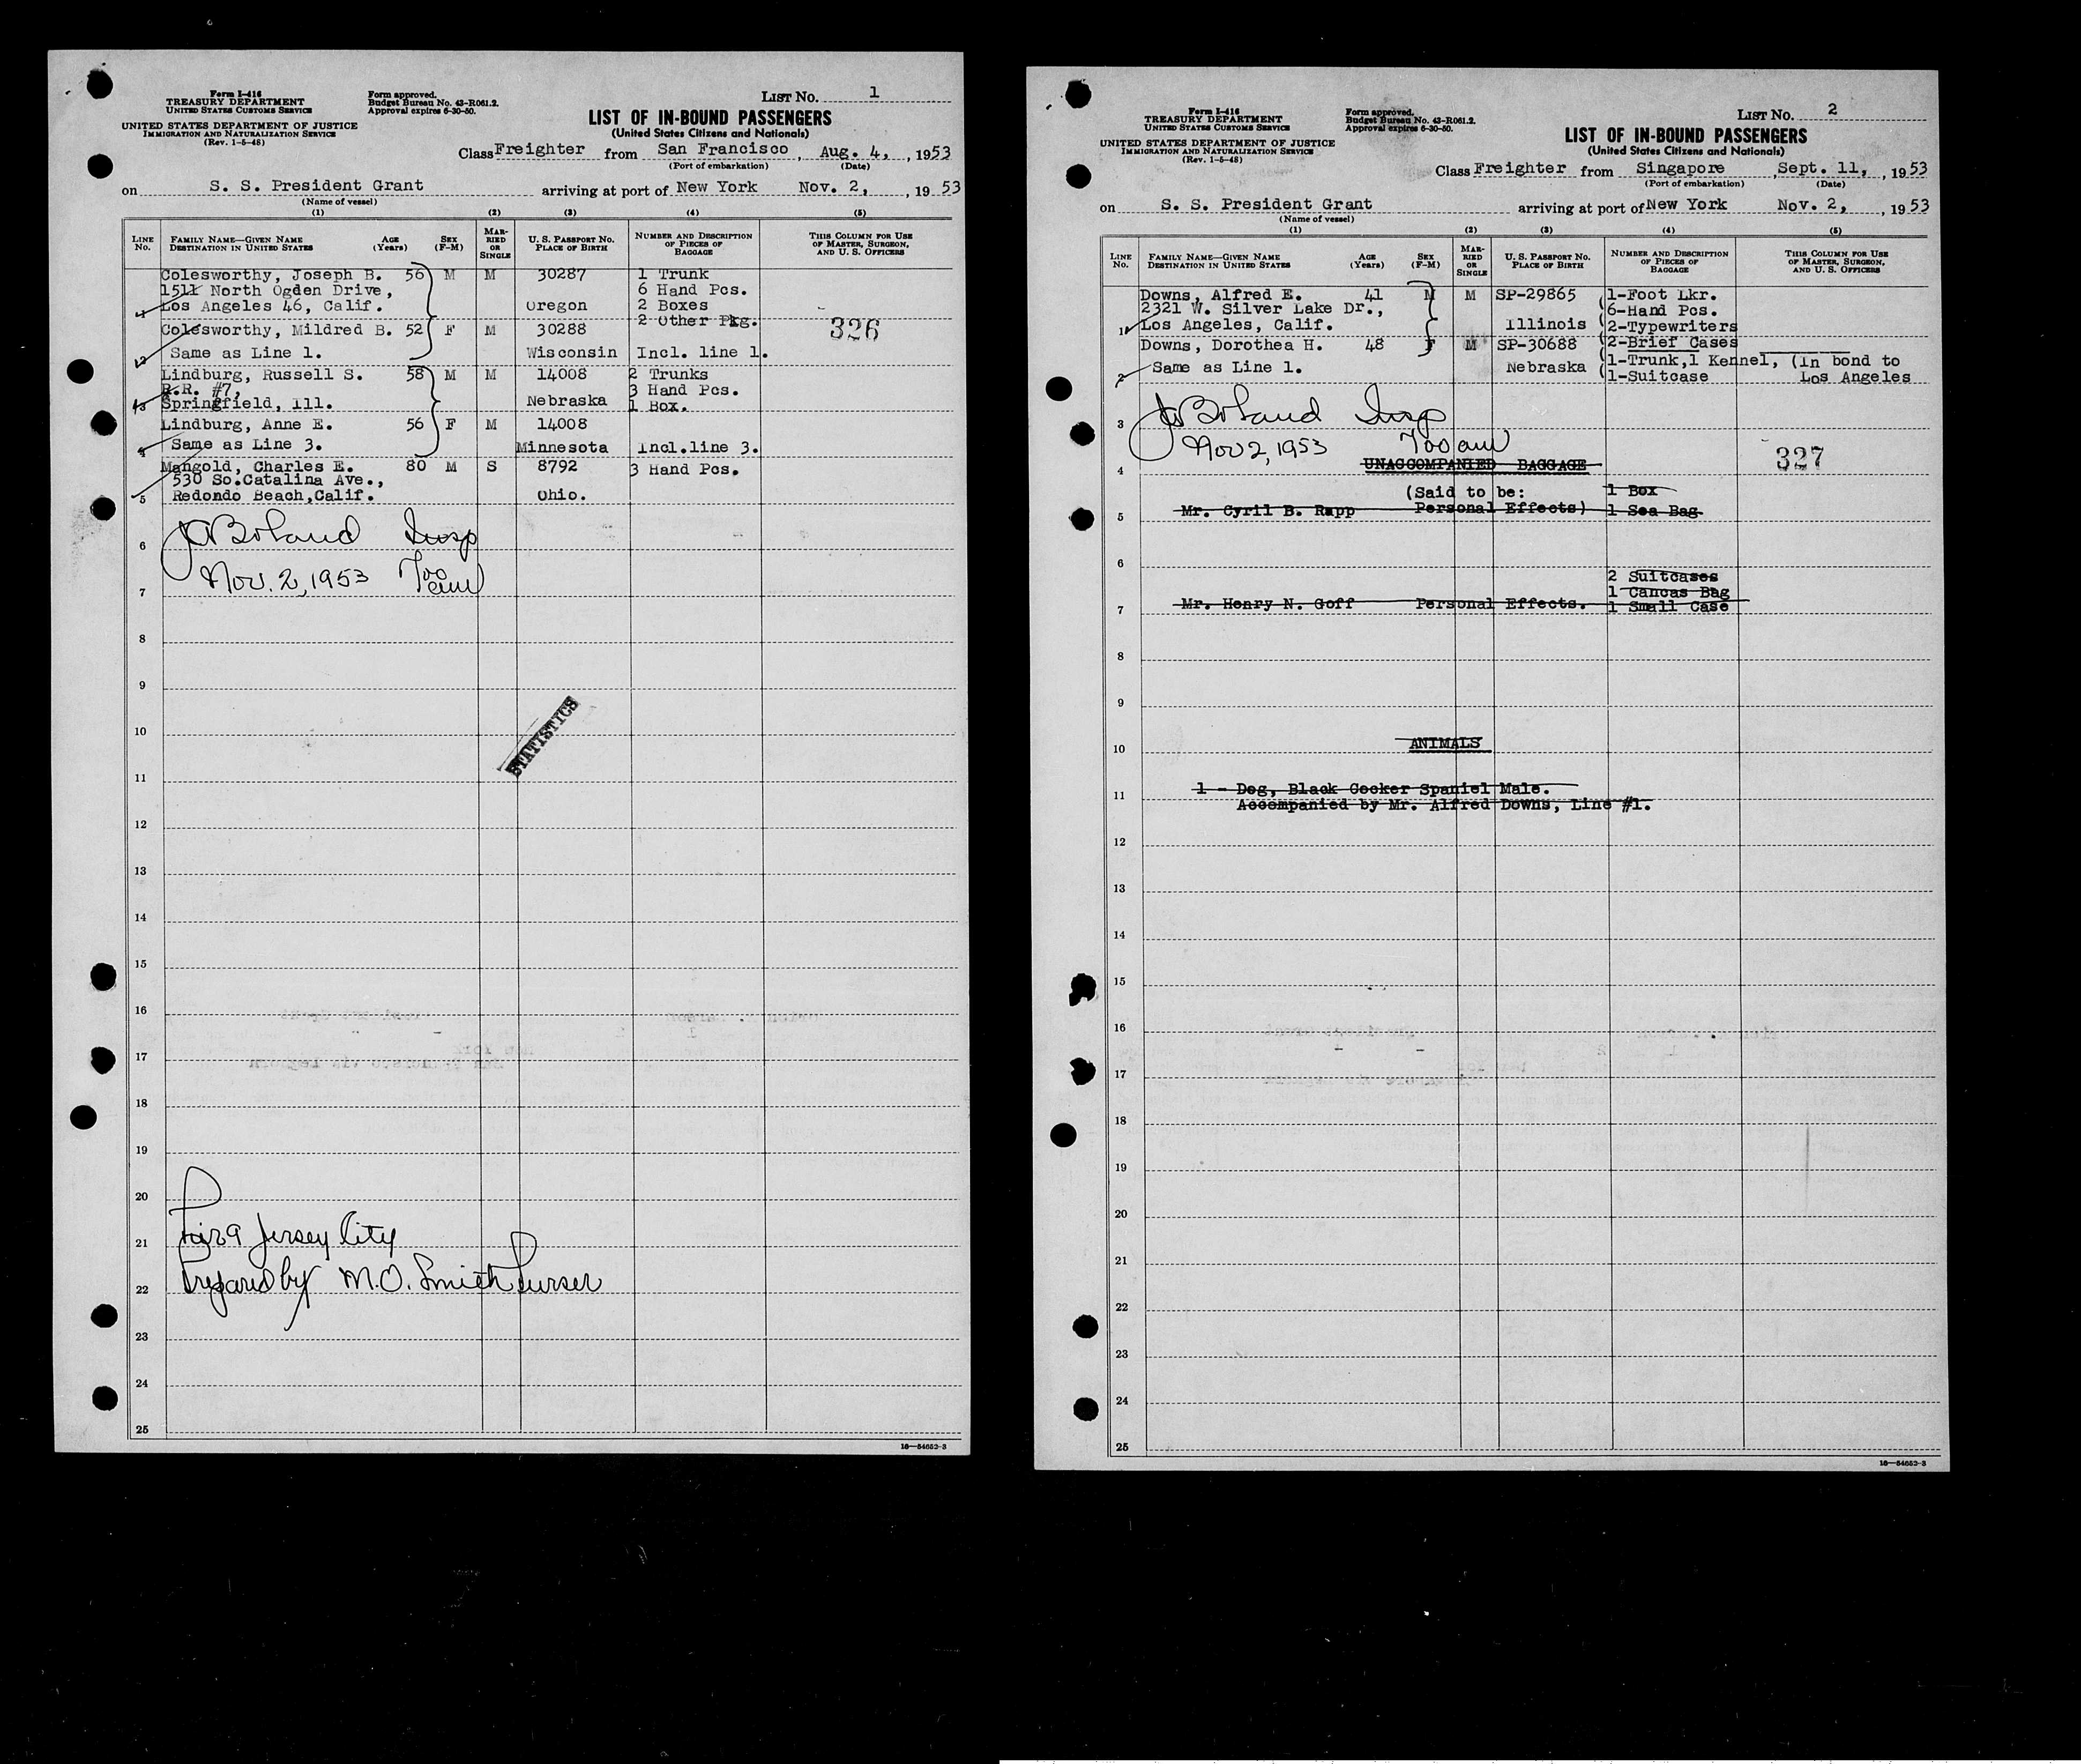 Form I-416
TREASURY DEPARTMENT
UNITED STATES CUSTOMS SERVICE
UNITED STATES DEPARTMENT OF JUSTICE
IMMIGRATION AND NATURALIZATION SERVICE
(Rev. 1-5-48)
Form approved.
Budget Bureau No. 43-R061.2.
Approval expires 6-30-50.
LIST No. 1
LIST OF IN-BOUND PASSENGERS
(United States Citizens and Nationals)
Class Freighter from San Francisco, Aug. 4, , 1953
(Port of embarkation) (Date)
on S. S. President Grant arriving at port of New York Nov. 2, , 1953
(Name of vessel)
(1) (2) (3) (4) (5)
LINE No. FAMILY NAME—GIVEN NAME DESTINATION IN UNITED STATES AGE (Years) SEX (F-M) MARRIED OR SINGLE U. S. PASSPORT No. PLACE OF BIRTH NUMBER AND DESCRIPTION OF PIECES OF BAGGAGE THIS COLUMN FOR USE OF MASTER, SURGEON, AND U. S. OFFICERS
Colesworthy, Joseph B. 56 M M 30287 1 Trunk
1511 North Ogden Drive, 6 Hand Pcs.
1 Los Angeles 46, Calif. Oregon 2 Boxes
2 Other Pkg.
Colesworthy, Mildred B. 52 F M 30288 326
2 Same as Line 1. Wisconsin Incl. line 1.
Lindburg, Russell S. 58 M M 14008 2 Trunks
R.R. #7, 3 Hand Pcs.
3 Springfield, Ill. Nebraska 1 Box.
Lindburg, Anne E. 56 F M 14008
4 Same as Line 3. Minnesota Incl.line 3.
Mangold, Charles E. 80 M S 8792 3 Hand Pcs.
530 So.Catalina Ave.,
5 Redondo Beach,Calif. Ohio.
Boland Insp
6
Nov. 2, 1953 7 00 am
7
8
9
STATISTICS
10
11
12
13
14
15
16
17
18
19
20
Jersey City
21
Prepared by M.O. Smith Purser
22
23
24
25
16—54652-3
Form I-416
TREASURY DEPARTMENT
UNITED STATES CUSTOMS SERVICE
UNITED STATES DEPARTMENT OF JUSTICE
IMMIGRATION AND NATURALIZATION SERVICE
(Rev. 1-5-48)
Form approved.
Budget Bureau No. 43-R061.2.
Approval expires 6-30-50.
LIST No. 2
LIST OF IN-BOUND PASSENGERS
(United States Citizens and Nationals)
Class Freighter from Singapore , Sept. 11, , 1953
(Port of embarkation) (Date)
on S. S. President Grant arriving at port of New York Nov. 2, , 1953
(Name of vessel)
(1) (2) (3) (4) (5)
LINE No. FAMILY NAME—GIVEN NAME DESTINATION IN UNITED STATES AGE (Years) SEX (F-M) MARRIED OR SINGLE U. S. PASSPORT No. PLACE OF BIRTH NUMBER AND DESCRIPTION OF PIECES OF BAGGAGE THIS COLUMN FOR USE OF MASTER, SURGEON, AND U. S. OFFICERS
Downs, Alfred E. 41 M M SP-29865 (1-Foot Lkr.
2321 W. Silver Lake Dr., (6-Hand Pcs.
1 Los Angeles, Calif. Illinois (2-Typewriters
Downs, Dorothea H. 48 F M SP-30688 (2-Brief Cases
(1-Trunk,1 Kennel, (In bond to
2 Same as Line 1. Nebraska (1-Suitcase Los Angeles
Boland Insp
3
Nov 2, 1953 7 00 am
327
UNACCOMPANIED BAGGAGE
4
(Said to be: 1 Box
5 Mr. Cyril B. Rapp Personal Effects) 1 Sea Bag
6
2 Suitcases
1 Cancas Bag
7 Mr. Henry N. Goff Personal Effects. 1 Small Case
8
9
ANIMALS
10
1 - Dog, Black Cocker Spaniel Male.
11 Accompanied by Mr. Alfred Downs, Line #1.
12
13
14
15
16
17
18
19
20
21
22
23
24
25
16—54652-3